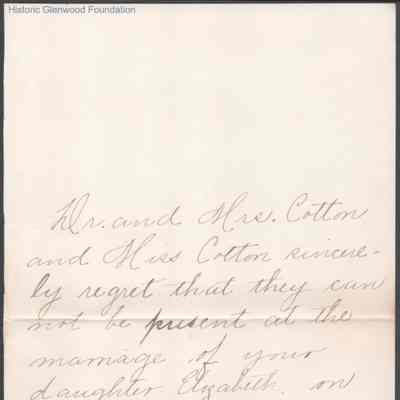 Historic Glenwood Foundation
Dr. and Mrs. Cotton
and Miss Cotton sincere-
ly regret that they can
not be present at the
marriage of your
daughter Elizabeth. on